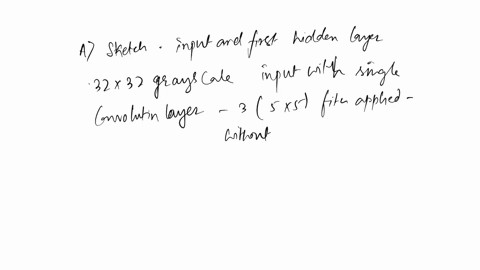 A) Sketch . input and first hidden layer
. 32 x 32 grayscale input with single
Convolutin layer - 3 ( 5 x 5 ) filter applied -
without